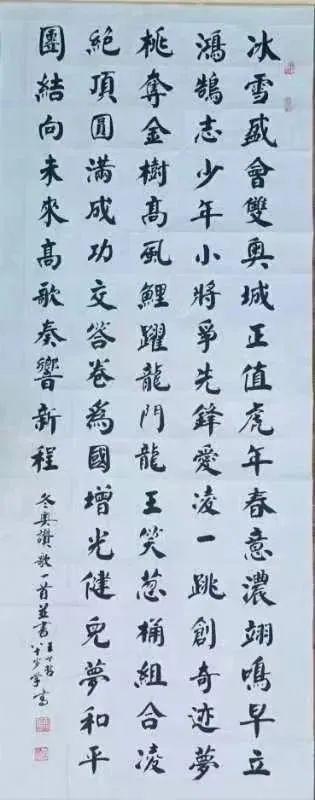 冰雪盛會雙奧城正值虎年春意濃翊鳴早立
鴻鵠志少年小將爭先鋒愛凌一跳創奇迹夢
桃奪金樹高風鯉躍龍門龍王笑葱桶組合凌
絕頂圓滿成功交答卷爲國增光健兒夢和平
團結向未來高歌奏響新程
冬奧讚歌一首並書